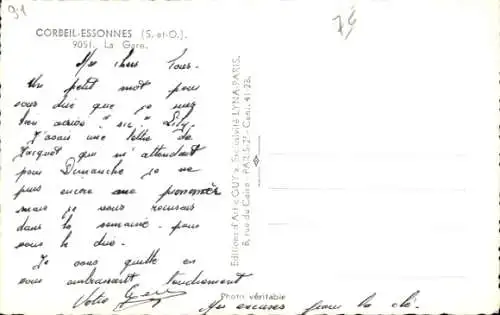 91
76
CORBEIL-ESSONNES (S.-et-O.).
9051. La Gare.
Mes chers Tous.
Un petit mot pour
vous dire que je suis
bien arrivé "sic" Lily.
J'avais une lettre de
Jacquot qui m'attendait
pour Dimanche je ne
puis encore me prononcer
mais je vous récrirais
dans la semaine pour
vous le dire.
Je vous quitte en
vous embrassant tendrement
Votre
Mes excuses pour la
Photo véritable
Editions d'Art "GUY", Spécialité LYNA-PARIS.
8, rue du Caire - PARIS-2e - Cent. 41-23.